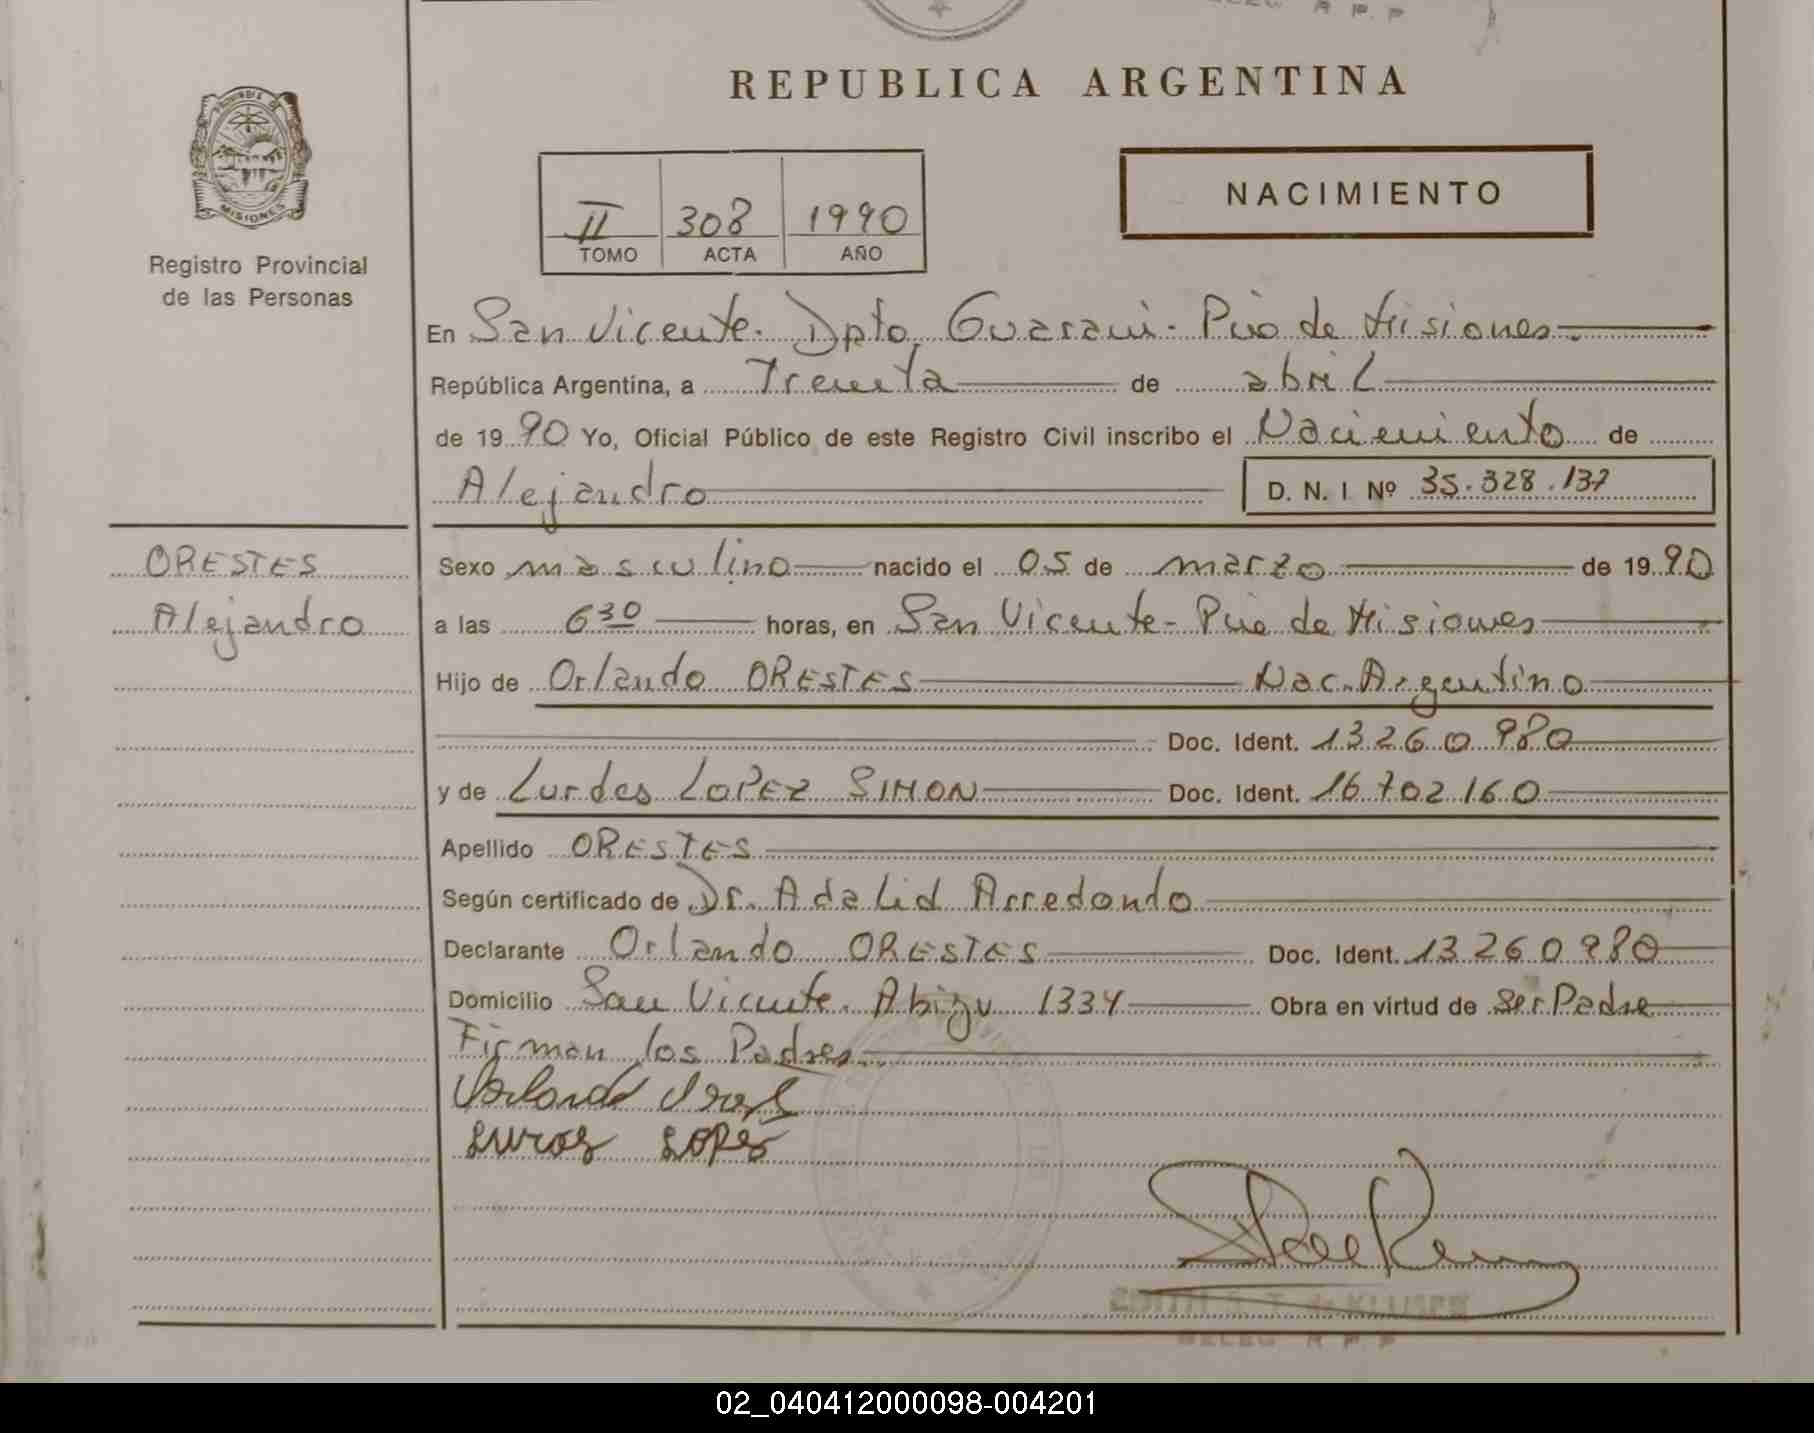 REPUBLICA ARGENTINA
PROVINCIA DE
MISIONES
Registro Provincial
de las Personas
II 308 1990
TOMO ACTA AÑO
NACIMIENTO
En San Vicente. Dpto. Guarani. Pcia de Misiones.
República Argentina, a Treinta de abril
de 1990 Yo, Oficial Público de este Registro Civil inscribo el Nacimiento de
Alejandro D. N. I. Nº 35.328.137
ORESTES
Alejandro
Sexo masculino nacido el 05 de marzo de 1990
a las 6 30 horas, en San Vicente - Pcia de Misiones
Hijo de Orlando ORESTES Nac. Argentino
Doc. Ident. 13 260 980
y de Lurdes LOPEZ SIMON Doc. Ident. 16 702 160
Apellido ORESTES
Según certificado de Dr. Adalid Arredondo
Declarante Orlando ORESTES Doc. Ident. 13 260 980
Domicilio San Vicente. Abizu 1334 Obra en virtud de Ser Padre
Firman los Padres
EDITH S. T. de KLUMPS
DELEG R P P
02_040412000098-004201